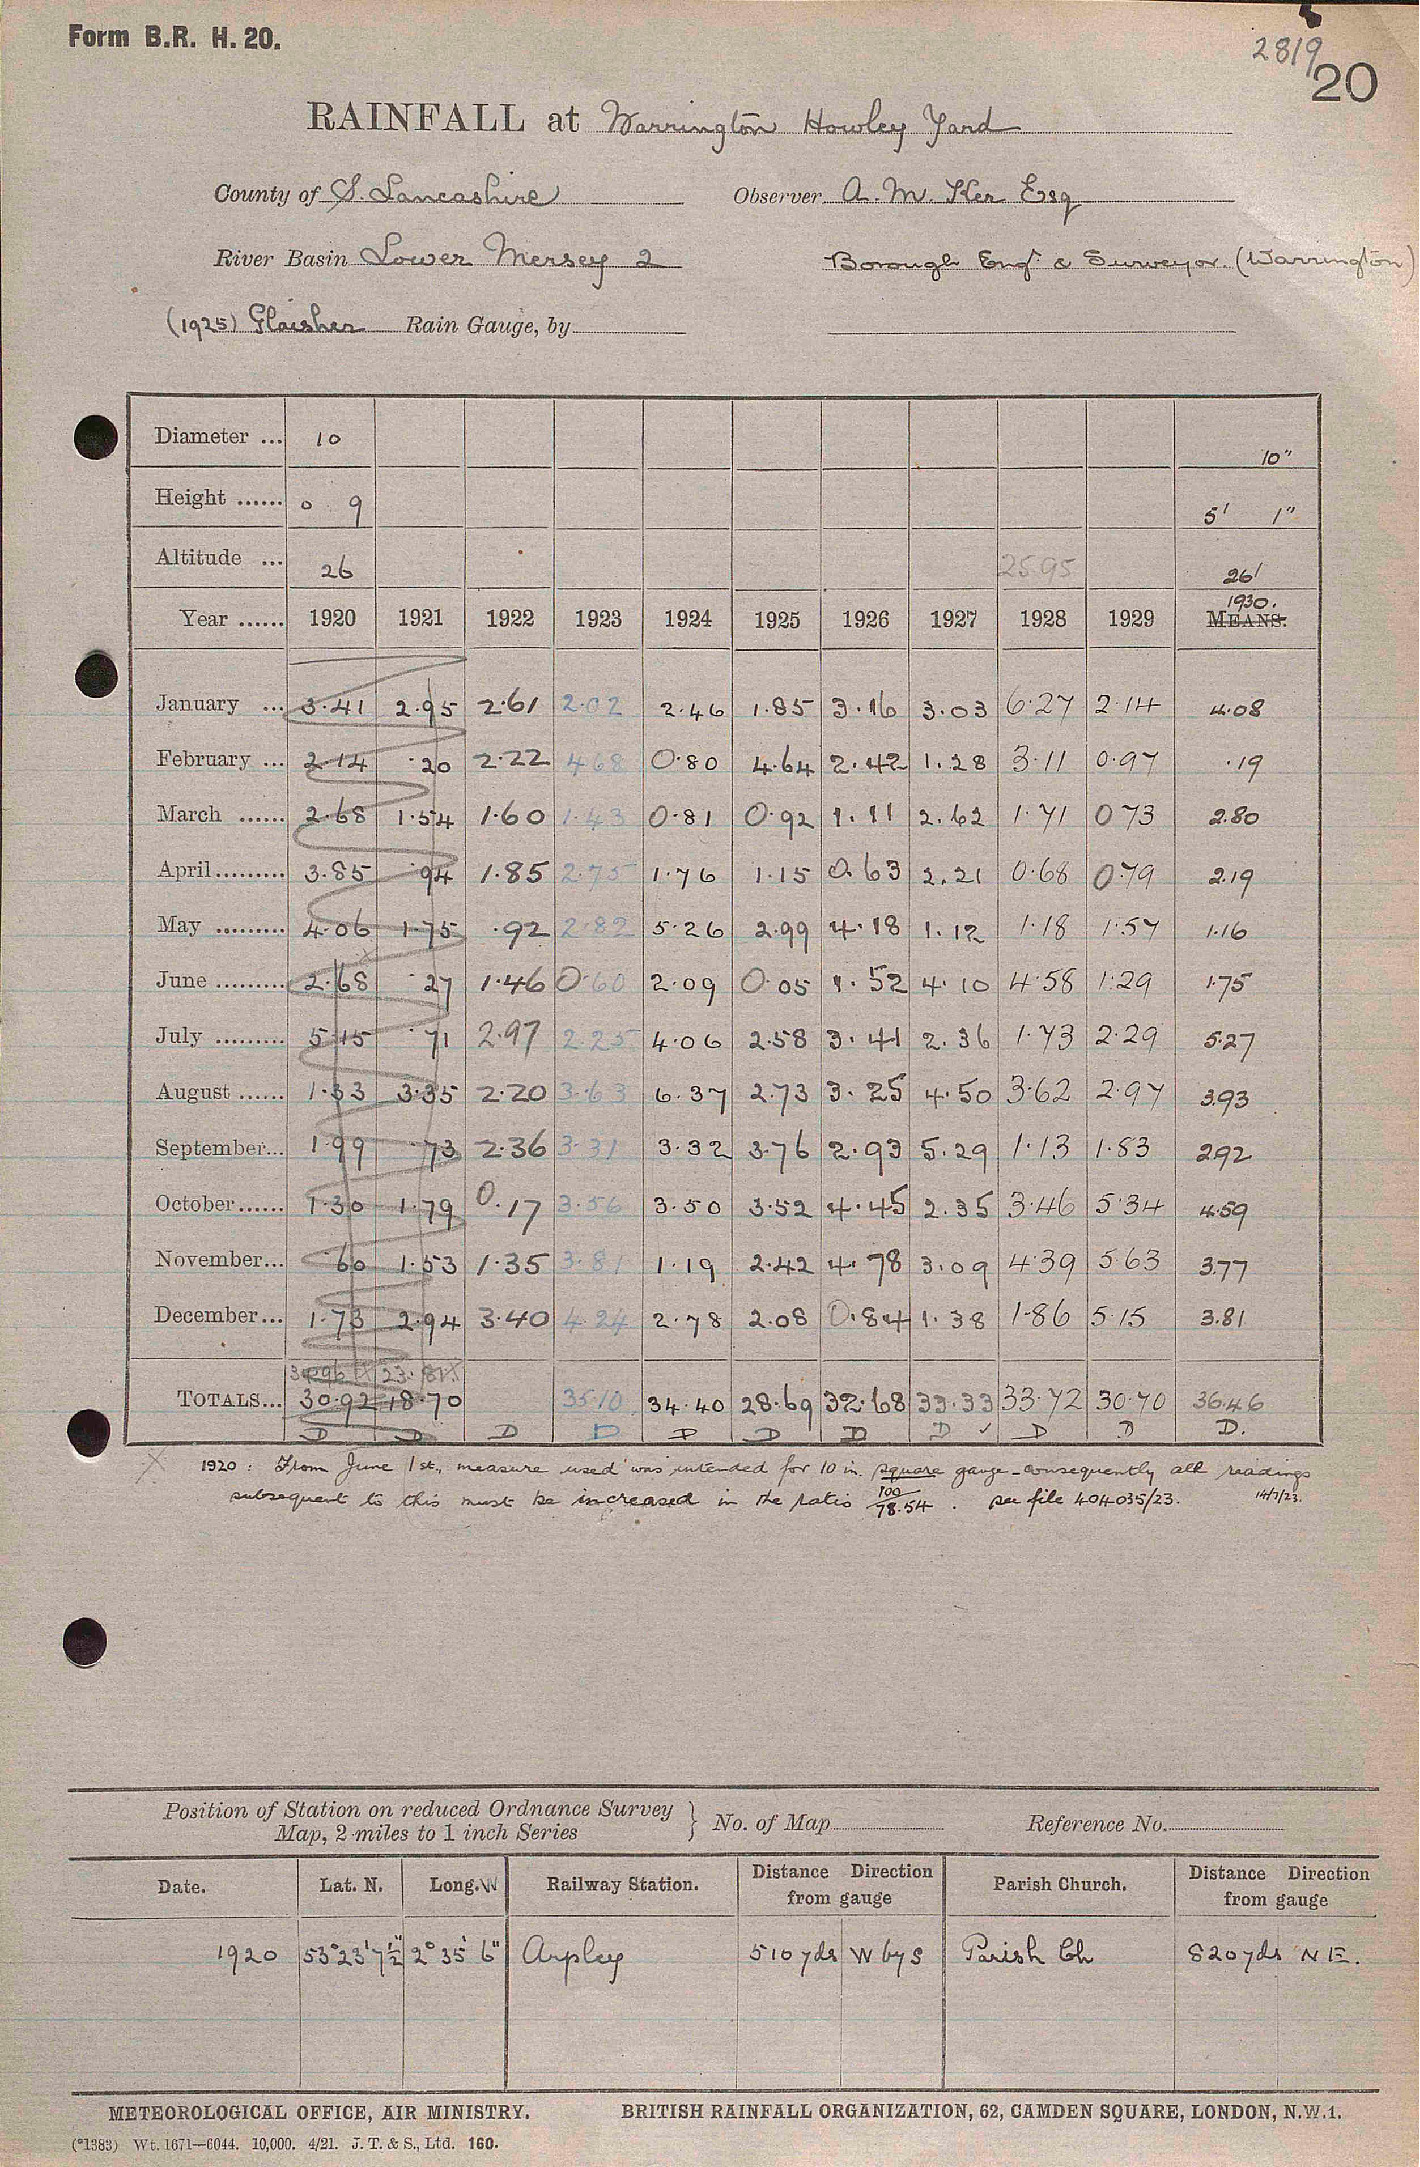 Form B.R. H. 20.
2819
20
RAINFALL at Warrington Howley Yard
County of S. Lancashire Observer A. M. Ker Esq
River Basin Lower Mersey 2 Borough Engr & Surveyor. (Warrington)
(1925) Glaisher Rain Gauge, by
Diameter ... 10 10"
Height ...... 0 9 5' 1"
Altitude ... 26 25.95 26'
Year ...... 1920 1921 1922 1923 1924 1925 1926 1927 1928 1929 1930. MEANS.
January ... 3.41 2.95 2.61 2.02 2.46 1.85 3.16 3.03 6.27 2.14 4.08
February ... 2.14 .20 2.22 4.68 0.80 4.64 2.42 1.28 3.11 0.97 .19
March ...... 2.68 1.54 1.60 1.43 0.81 0.92 1.11 2.62 1.71 0.73 2.80
April ......... 3.85 .94 1.85 2.75 1.76 1.15 0.63 2.21 0.68 0.79 2.19
May ......... 4.06 1.75 .92 2.82 5.26 2.99 4.18 1.12 1.18 1.57 1.16
June ......... 2.68 .27 1.46 0.60 2.09 0.05 1.52 4.10 4.58 1.29 1.75
July ......... 5.15 .71 2.97 2.25 4.06 2.58 3.41 2.36 1.73 2.29 5.27
August ...... 1.33 3.35 2.20 3.63 6.37 2.73 3.25 4.50 3.62 2.97 3.93
September... 1.99 .73 2.36 3.31 3.32 3.76 2.93 5.29 1.13 1.83 2.92
October ...... 1.30 1.79 0.17 3.56 3.50 3.52 4.45 2.35 3.46 5.34 4.59
November... .60 1.53 1.35 3.81 1.19 2.42 4.78 3.09 4.39 5.63 3.77
December ... 1.73 2.94 3.40 4.24 2.78 2.08 0.84 1.38 1.86 5.15 3.81
TOTALS... 30.92 18.70 35.10 34.40 28.69 32.68 33.33 33.72 30.70 36.46
D D D D D D D D ✓ D D D.
X 1920 : From June 1st., measure used was intended for 10 in. square gauge - consequently all readings
subsequent to this must be increased in the ratio 100/78.54 . see file 404035/23. 14/7/23.
Position of Station on reduced Ordnance Survey
Map, 2 miles to 1 inch Series } No. of Map Reference No.
Date. Lat. N. Long. W Railway Station. Distance Direction from gauge Parish Church. Distance Direction from gauge
1920 53°23'7½" 2°35'6" Arpley 510 yds W by S Parish Ch 820 yds N E.
METEOROLOGICAL OFFICE, AIR MINISTRY. BRITISH RAINFALL ORGANIZATION, 62, CAMDEN SQUARE, LONDON, N.W.1.
(*1383) Wt. 1671—6044. 10,000. 4/21. J. T. & S., Ltd. 160.